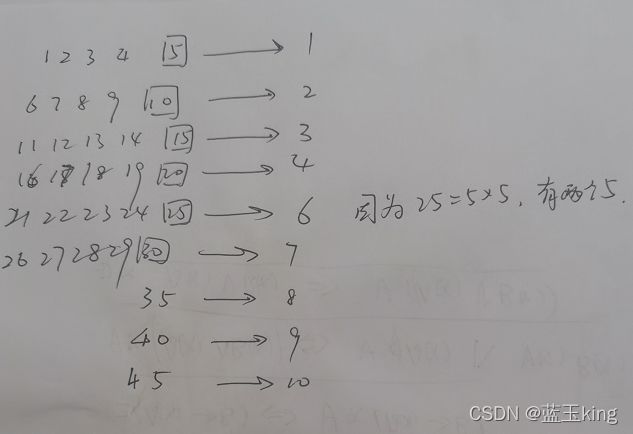 1 2 3 4 5 → 1
6 7 8 9 10 → 2
11 12 13 14 15 → 3
16 17 18 19 20 → 4
21 22 23 24 25 → 6 因为 25=5×5，有两个5.
26 27 28 29 30 → 7
35 → 8
40 → 9
45 → 10
CSDN @蓝玉king